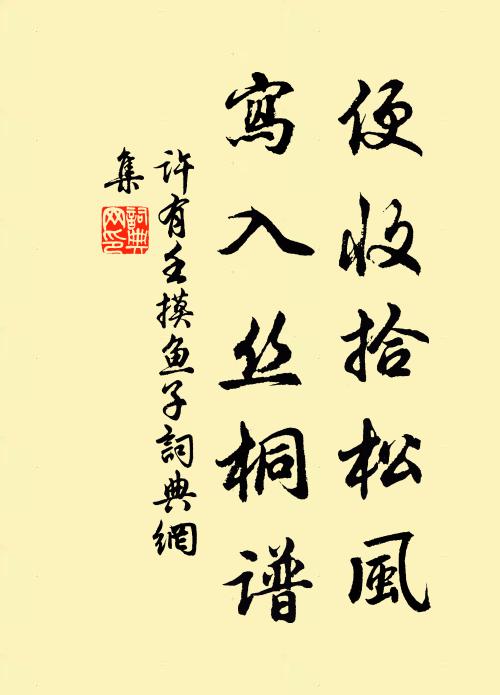 便收拾松風
寫入丝桐谱
许有壬摸鱼子詞典網
集
詞典
网印